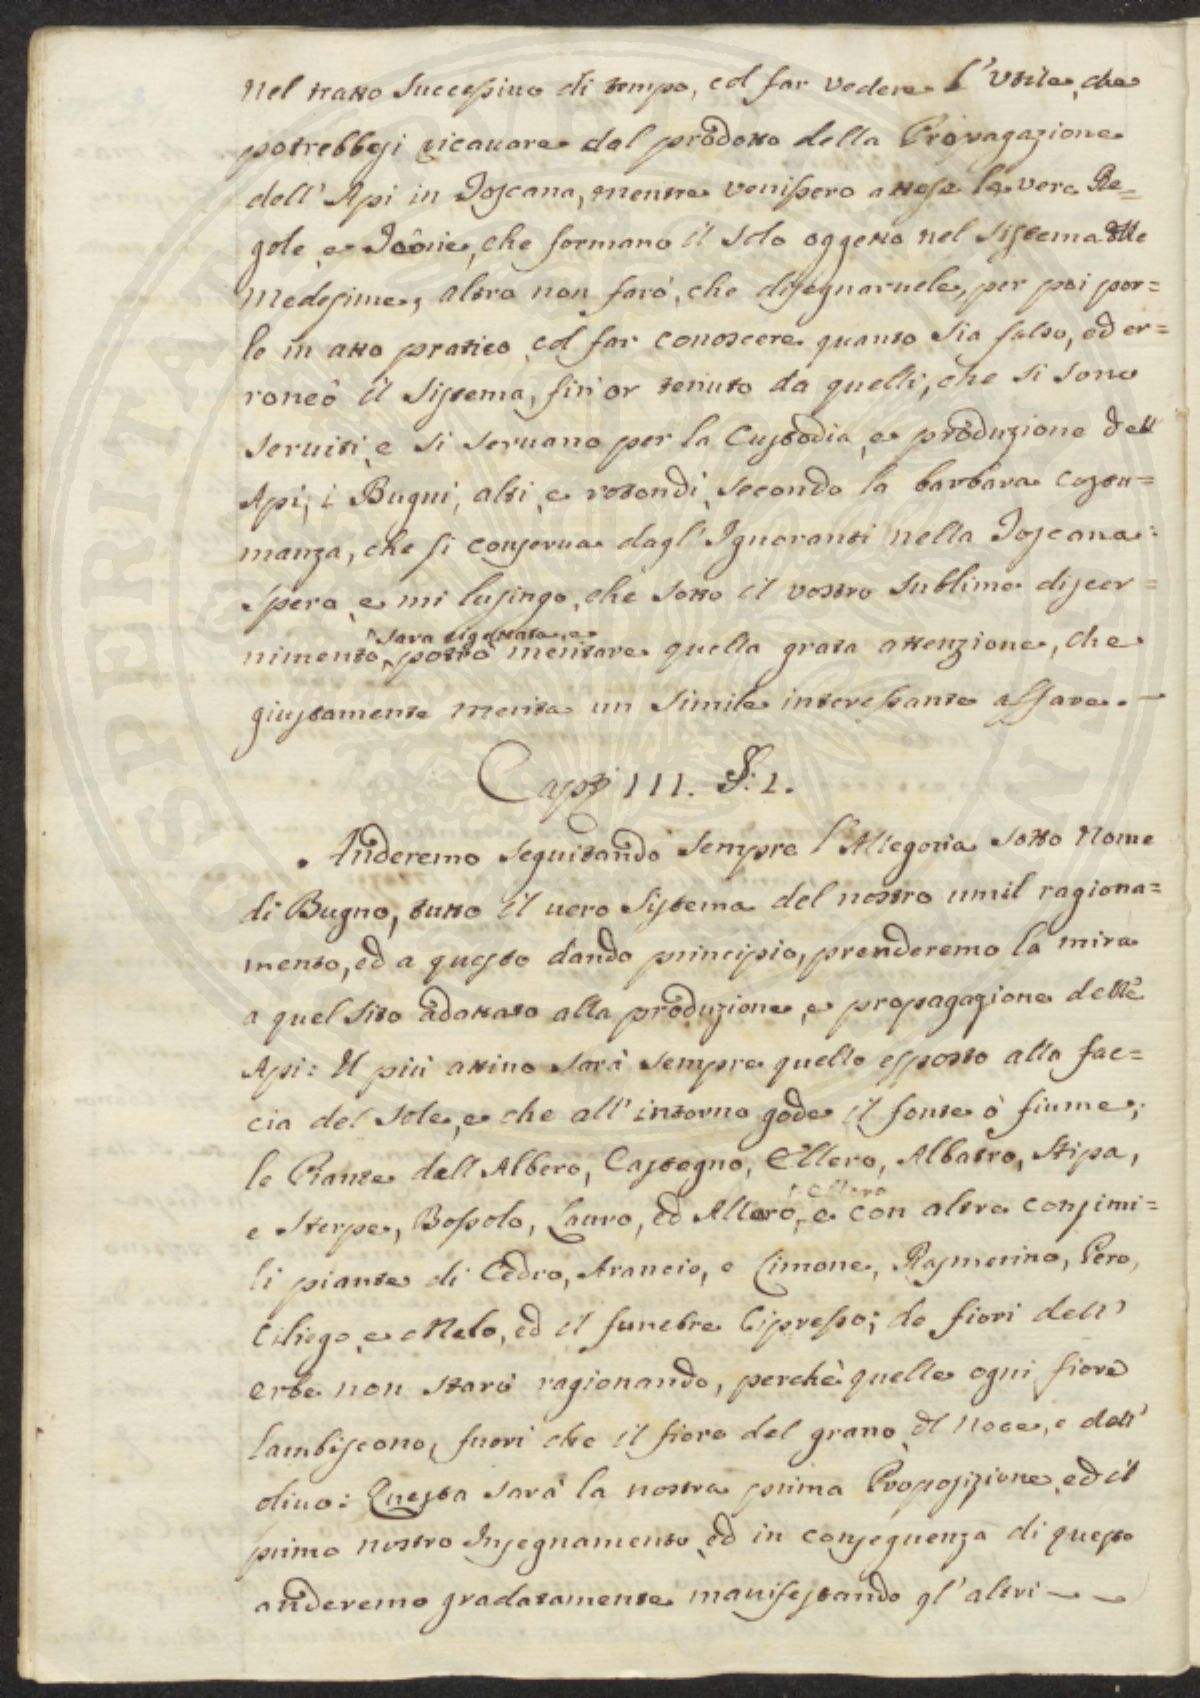 nel tratto successivo di tempo, col far vedere l'Utile, che
potrebbesi ricavare dal prodotto della Propagazione
dell'Api in Toscana, mentre venissero attese le vere Re=
gole, e che formano il solo oggetto nel sistema delle
Medesime, altro non farò, che disegnarvele, per poi por=
le in atto pratico col far conoscere quanto sia falso, ed er=
roneo il sistema, fin'or tenuto da quelli, che si sono
serviti, e si servano per la Custodia, e produzione dell
Api, i Bugni, alti, e rotondi, secondo la barbara costu=
manza, che si conserva dagl'Ignoranti nella Toscana:
Spero, e mi lusingo, che sotto il vostro sublime discer=
sarà rigettata, e
nimento, potrò meritare quella grata attenzione, che
giustamente merita un simile interessante affare. —
Capo III. §. 1.
Anderemo seguitando sempre l'Allegoria sotto nome
di Bugno, tutto il vero sistema del nostro umil ragiona=
mento, ed a questo dando principio, prenderemo la mira
a quel sito adattato alla produzione, e propagazione delle
Api: Il più attivo sarà sempre quello esposto alla fac=
cia del sole, e che all'intorno gode il fonte ò fiume;
le Piante dell Albero, Castagno, Ellero, Albatro, Stipa,
e Sterpe, Bossolo, Lauro, ed Alloro, e con altre consimi=
li piante di Cedro, Arancio, e Limone, Rasmerino, Pero,
Ciliego, e Melo, ed il funebre Cipresso; de fiori dell'
erbe non starò ragionando, perchè quelle ogni fiore
lambiscono, fuori che il fiore del grano, del Noce, e dell'
olivo: Questa sarà la nostra prima Proposizione, ed il
primo nostro Insegnamento, ed in conseguenza di questo
anderemo gradatamente manifestando gl'altri — —